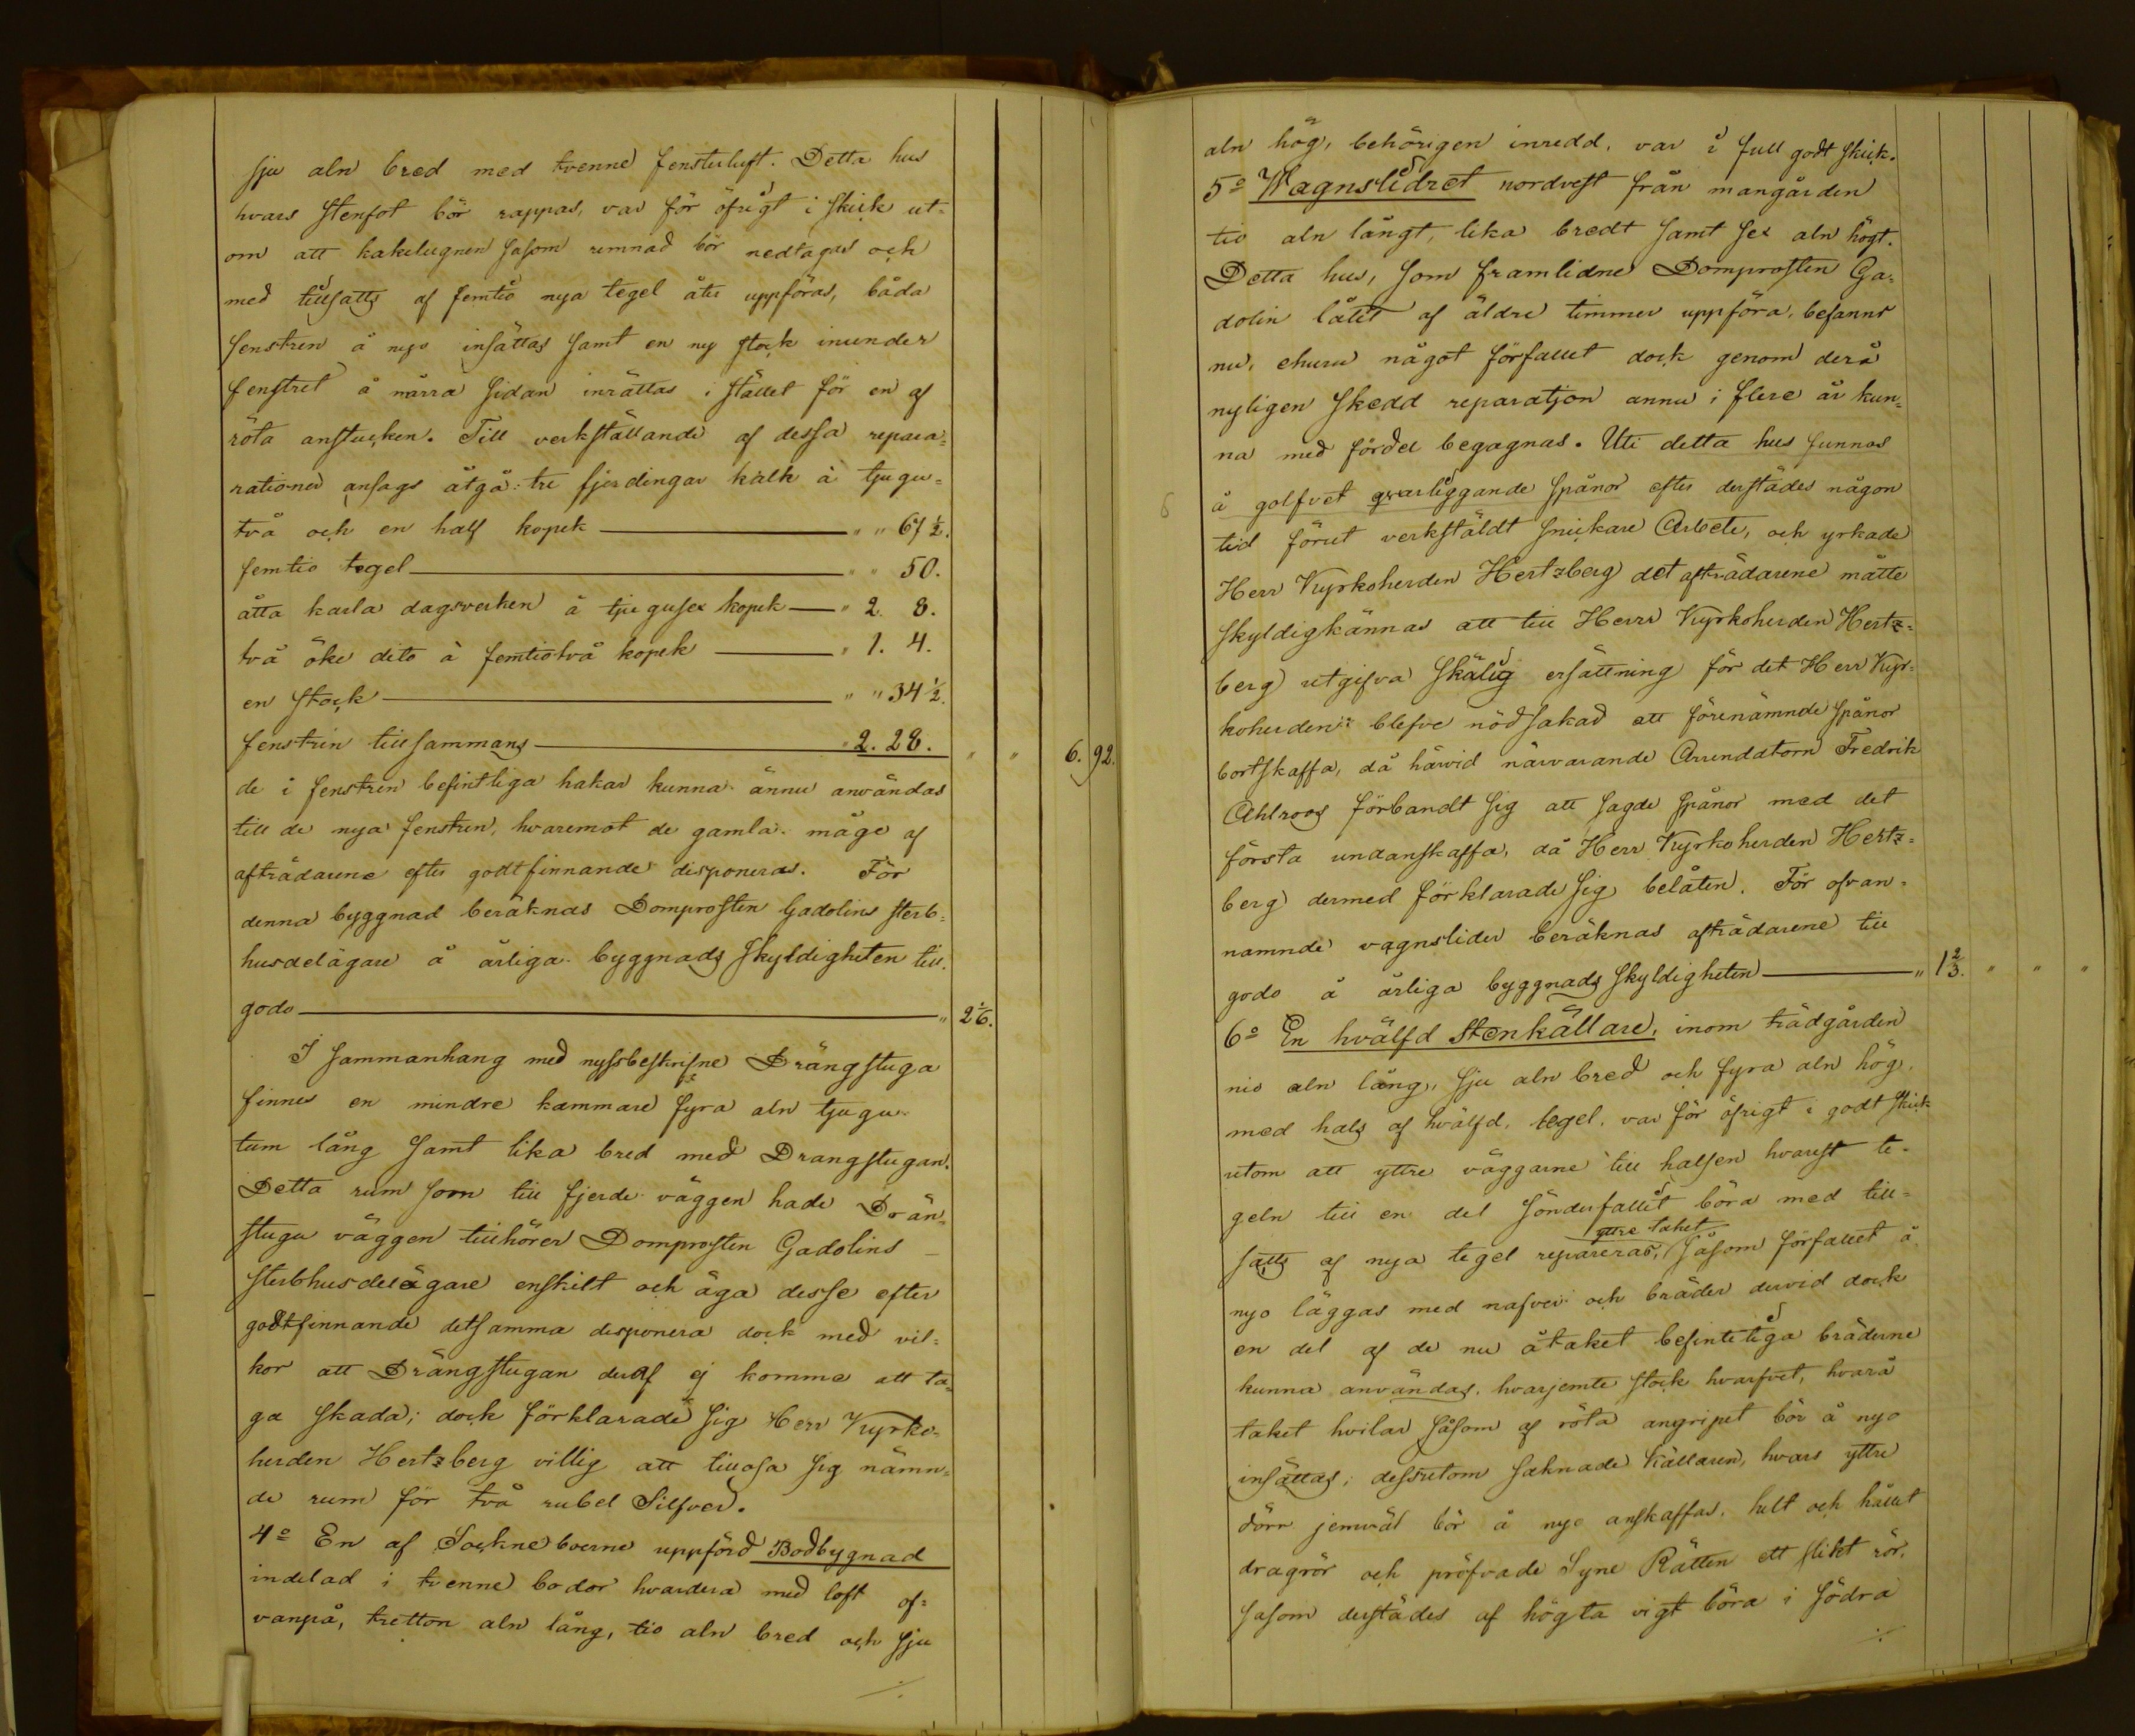 sju aln bred med tvenne fensterluft. Detta hus
hvars stenfot bör rappas, var för öfrigt i skick ut-
om att kakelugnen såsom remnad bör nedtagas och
med tillsatts af femtio nya tegel åter uppföras, båda
fenstren å nyo insättas samt en ny stock inunder
fenstret å norra sidan inrättas i stället för en af
röta anstucken. Till verkställande af dessa repara-
rationer ansags åtgå: tre fjerdingar kalk à tjugu-
två och en half kopek — " " 67 1/2.
femtio tegel — " " 50.
åtta karla dagsverken à tjugusex kopek — " 2. 8.
två öke dito à femtiotvå kopek — " 1. 4.
en stock — " " 34 1/2.
fenstren tillsammans — " 2. 28. " " 6. 92.
de i fenstren befintliga hakar kunna ännu användas
till de nya fenstren, hvaremot de gamla måge af
afträdarene efter godtfinnande disponeras. För
denna byggnad beräknas Domprosten Gadolins sterb-
husdelägare å årliga byggnads skyldigheten till
godo — " 2 1/6.
I sammanhang med nyssbeskrifne Drängstuga
finnes en mindre kammare fyra aln tjugu
tum lång samt lika bred med Drangstugan.
Detta rum som till fjerde väggen hade Drän-
stugu väggen tillhörer Domprosten Gadolins
sterbhusdelägare enskilt och äga desse efter
godtfinnande detsamma disponera dock med vil-
kor att Drängstugan deraf ej komme att ta-
ga skada; dock förklarade sig Herr Kyrko-
herden Hertzberg villig att tillösa sig nämn-
de rum för två rubel Silfver.
4º En af Sockneboerne uppförd Bodbygnad
indelad i tvenne bodor hvardera med loft of-
vanpå, tretton aln lång, tio aln bred och sju
./.
aln hög, behörigen inredd, var i full godt skick.
5º Wagnslidret nordvest från mangården
tio aln långt, lika bredt samt sex aln högt.
Detta hus, som framlidne Domprosten Ga-
dolin låtit af äldre timmer uppföra, befanns
nu, ehuru något förfallet dock genom derå
nyligen skedd reparation annu i flere år kun-
na med fördel begagnas. Uti detta hus funnos
å golfvet qvarliggande spånor efter derstädes någon
tid förut verkstäldt snickare Arbete, och yrkade
Herr Kyrkoherden Hertzberg det afträdarene måtte
skyldigkännas att till Herrr Kyrkoherden Hertz-
berg utgifva skälig ersättning för det Herr Kyr-
koherden blefve nödsakad att förenämnde spånor
bortskaffa, då härvid närvarande Arrendatorn Fredrik
Ahlroos förbandt sig att sagde spånor med det
första undanskaffa, då Herr Kyrkoherden Hertz-
berg dermed förklarade sig belåten. För ofvan-
namnde vagnslider beräknas afträdarene till
godo å årliga byggnads skyldigheten — " 1 2/3. " " "
6º En hvälfd Stenkällare, inom trädgården
nio aln lång, sju aln bred och fyra aln hög,
med hals af hvälfd tegel, var för öfrigt i godt skick
utom att yttre väggarne till halsen hvarest te-
geln till en del sönderfallit böra med till-
satts af nya tegel repareras, yttre taket såsom förfallet å
nyo läggas med nafver och bräder dervid dock
en del af de nu å taket befinteliga bräderne
kunna användas, hvarjemte stock hvarfvet, hvarå
taket hvilar såsom af röta angripet bör å nyo
insättas; dessutom saknade källaren, hvars yttre
dörr jemväl bör å nyo anskaffas, helt och hållet
dragrör och pröfvade Syne Rätten ett slikt rör,
såsom derstädes af högsta vigt böra i södra
./.